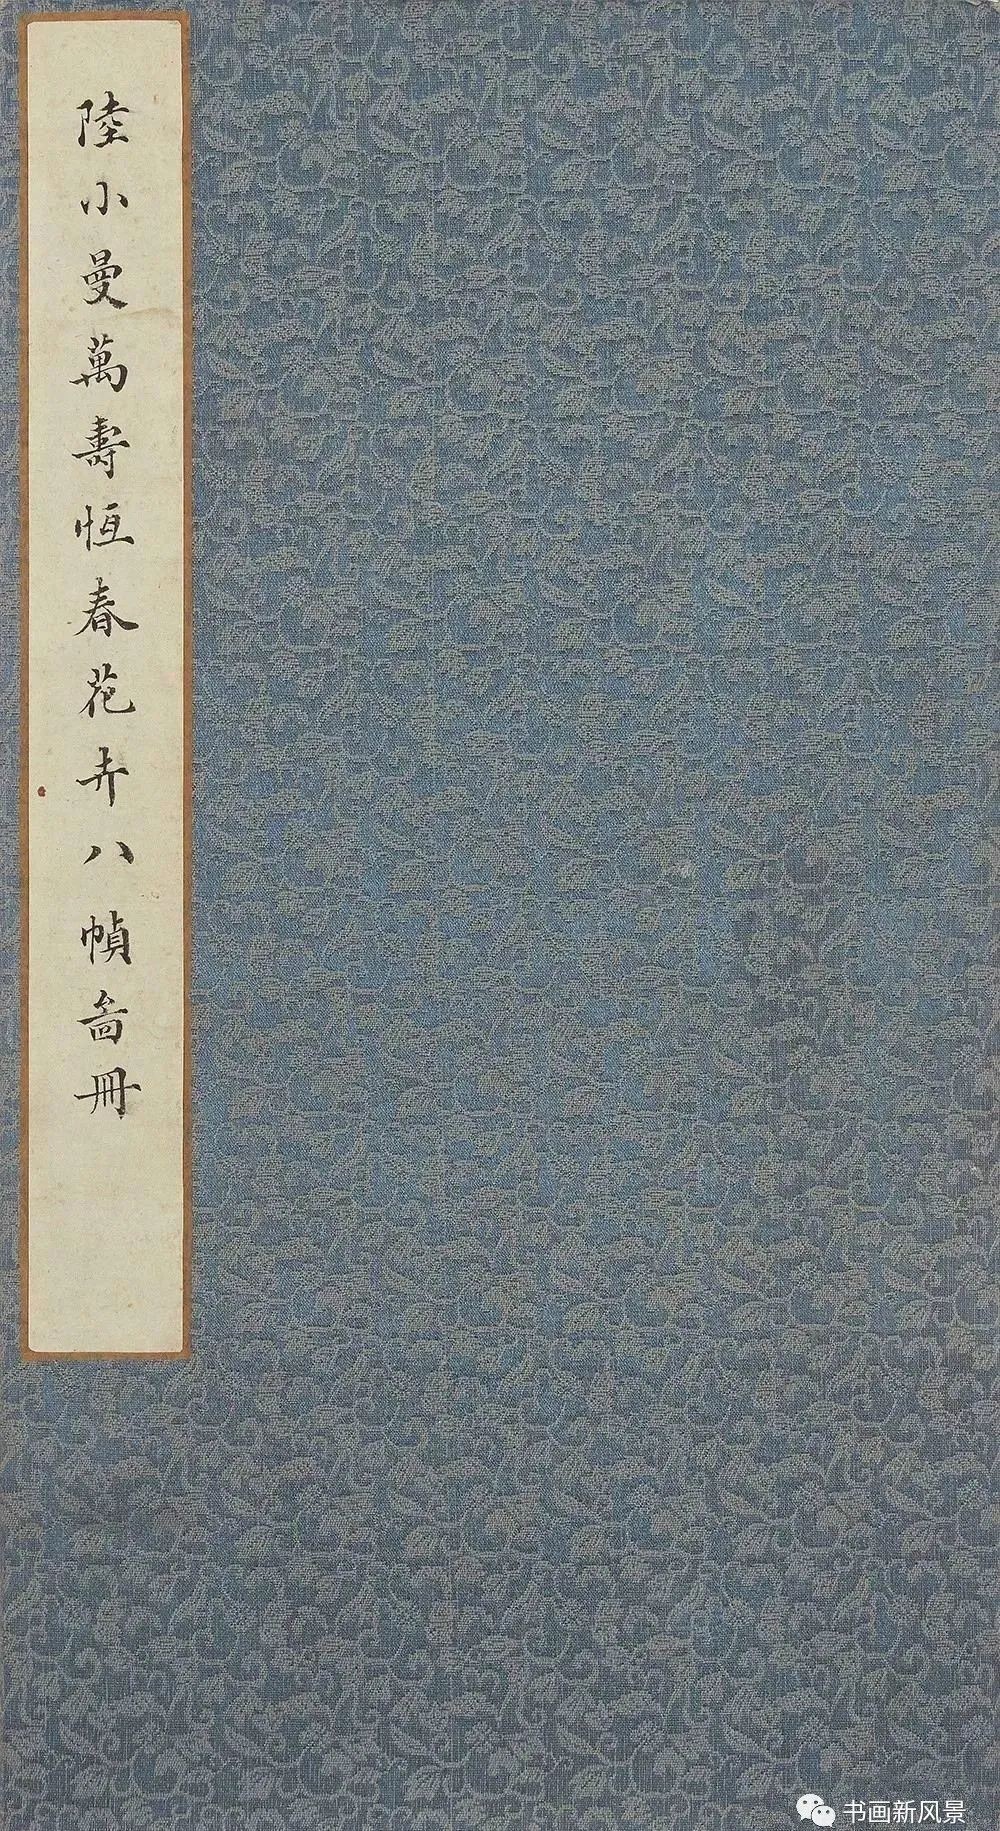 陸小曼萬壽恆春花卉八幀畵冊
书画新风景